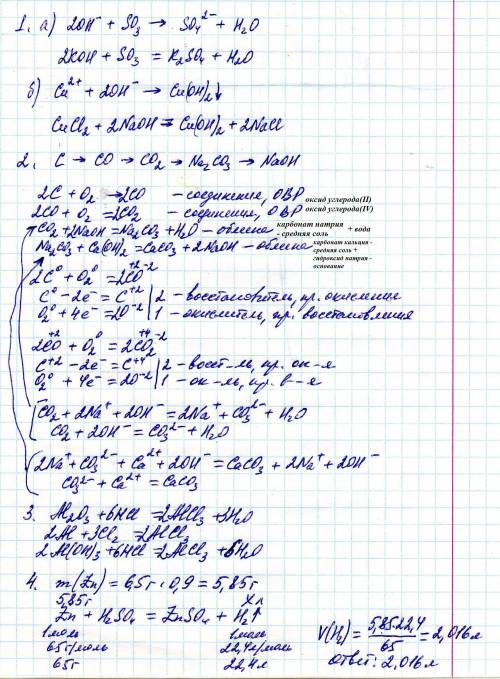 1. а) 2OH⁻ + SO₃ → SO₄²⁻ + H₂O
2KOH + SO₃ = K₂SO₄ + H₂O
б) Cu²⁺ + 2OH⁻ → Cu(OH)₂↓
CuCl₂ + 2NaOH = Cu(OH)₂ + 2NaCl
2. C → CO → CO₂ → Na₂CO₃ → NaOH
2C + O₂ → 2CO – соединение, ОВР оксид углерода(II)
2CO + O₂ = 2CO₂ – соединения, ОВР оксид углерода(IV)
CO₂ + 2NaOH = Na₂CO₃ + H₂O – обмена карбонат натрия - средняя соль + вода
Na₂CO₃ + Ca(OH)₂ = CaCO₃ + 2NaOH – обмена карбонат кальция - средняя соль + гидроксид натрия - основание
2C⁰ + O₂⁰ = 2C⁺²O⁻²
C⁰ – 2e⁻ = C⁺² | 2 – восстановитель, пр. окисления
O₂⁰ + 4e⁻ = 2O⁻² | 1 – окислитель, пр. восстановления
2C⁺²O + O₂⁰ = 2C⁺⁴O₂⁻²
C⁺² – 2e⁻ = C⁺⁴ | 2 – восст-ль, пр. ок-я
O₂⁰ + 4e⁻ = 2O⁻² | 1 – ок-ль, пр. в-я
CO₂ + 2Na⁺ + 2OH⁻ = 2Na⁺ + CO₃²⁻ + H₂O
CO₂ + 2OH⁻ = CO₃²⁻ + H₂O
2Na⁺ + CO₃²⁻ + Ca²⁺ + 2OH⁻ = CaCO₃ + 2Na⁺ + 2OH⁻
CO₃²⁻ + Ca²⁺ = CaCO₃
3. Al₂O₃ + 6HCl = 2AlCl₃ + 3H₂O
2Al + 3Cl₂ = 2AlCl₃
2Al(OH)₃ + 6HCl = 2AlCl₃ + 6H₂O
4. m(Zn) = 6,5г · 0,9 = 5,85г
5,85г X л
Zn + H₂SO₄ = ZnSO₄ + H₂↑
1моль 1моль
65г/моль 22,4л/моль
65г 22,4л
V(H₂) = 5,85·22,4 / 65 = 2,016л
Ответ: 2,016л